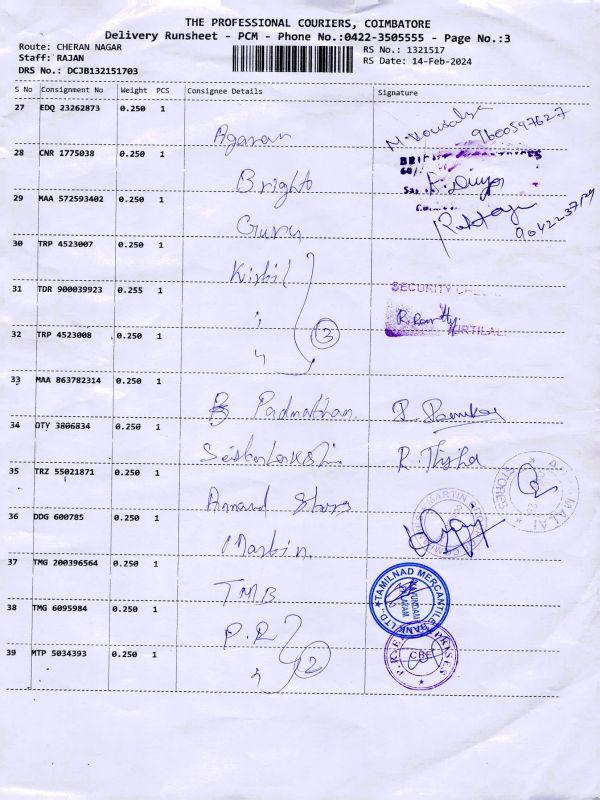 THE PROFESSIONAL COURIERS, COIMBATORE
Delivery Runsheet - PCM - Phone No.:0422-3505555 - Page No.:3
Route: CHERAN NAGAR
RS No.: 1321517
Staff: RAJAN
RS Date: 14-Feb-2024
DRS No.: DCJB132151703
S No Consignment No Weight PCS Consignee Details Signature
27 EDQ 23262873 0.250 1
Agaran M. Kousalya 9600597627
28 CNR 1775038 0.250 1
Bright
29 MAA 572593402 0.250 1
Guru 9042237129
30 TRP 4523007 0.250 1
31 TDR 900039923 0.255 1
SECURITY
3
32 TRP 4523008 0.250 1
33 MAA 863782314 0.250 1
Padmathan
34 OTY 3806834 0.250 1
R. Thisha
35 TRZ 55021871 0.250 1
Annand Stores STORES
36 DDG 600785 0.250 1
Martin MARTIN
37 TMG 200396564 0.250 1
TMB TAMILNAD MERCANTILE BANK LTD.
38 TMG 6095984 0.250 1
P.R
39 MTP 5034393 0.250 1
2 CBE